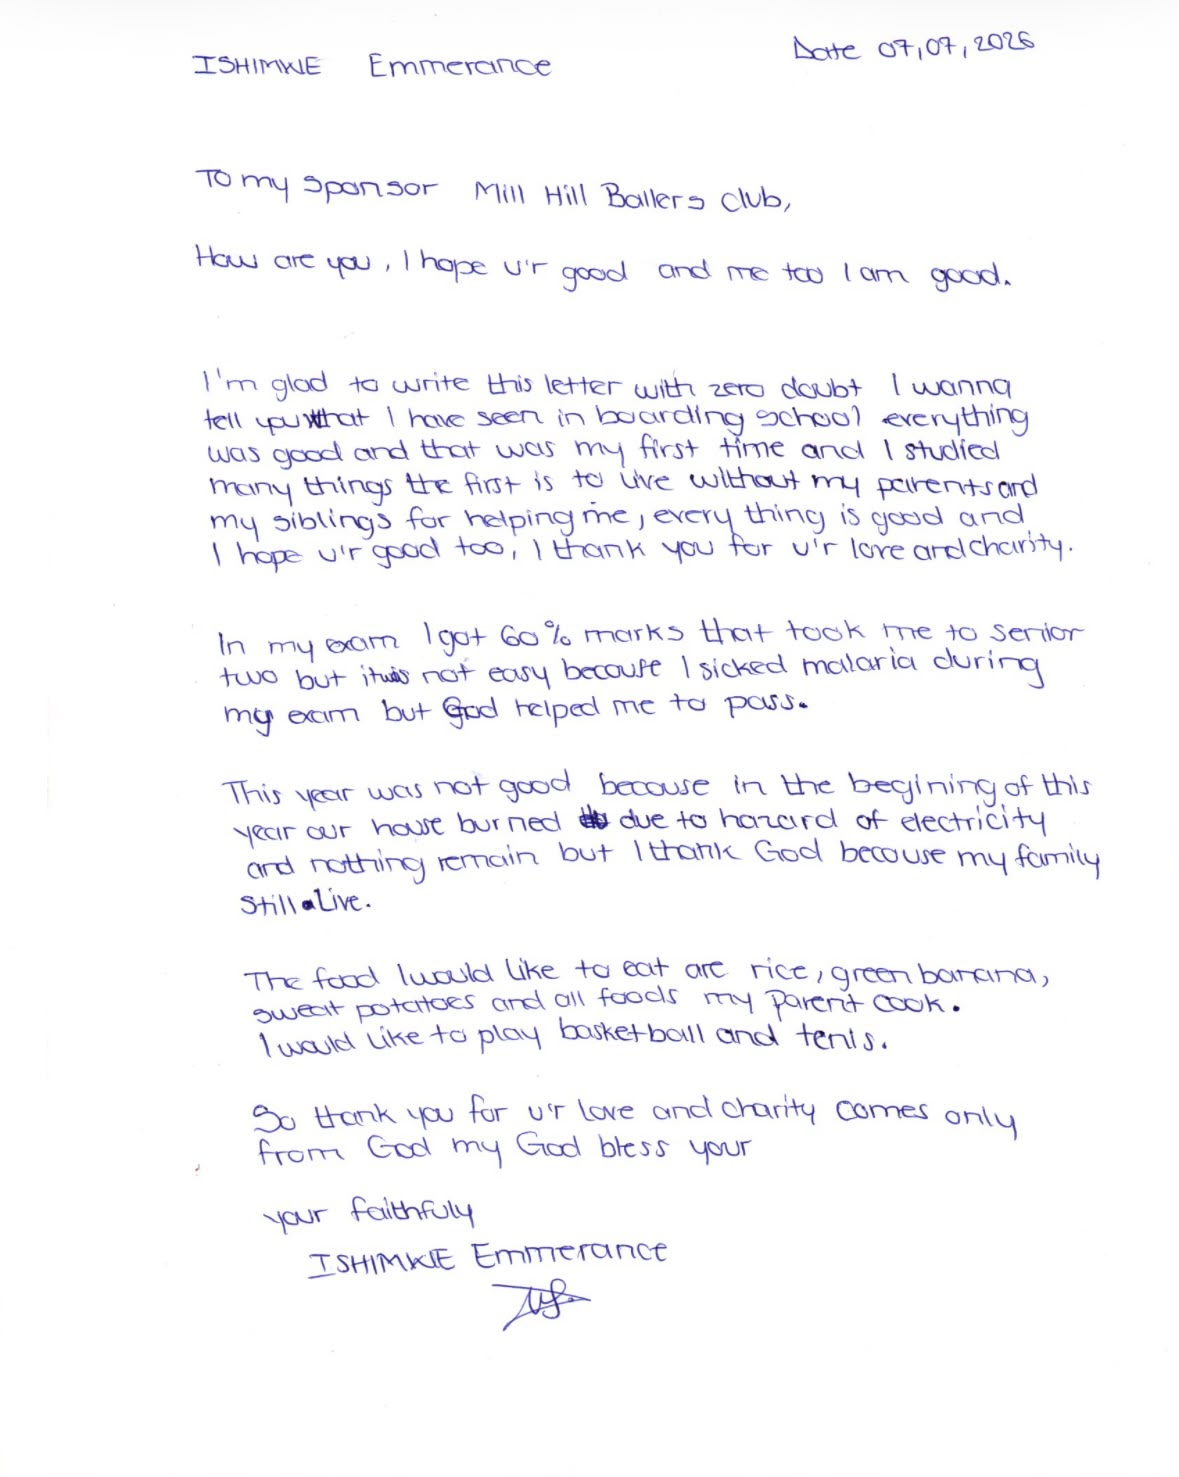 ISHIMWE Emmerance
Date 07,07,2026
To my sponsor Mill Hill Ballers club,
How are you, I hope u'r good and me too I am good.
I'm glad to write this letter with zero doubt I wanna
tell you what I have seen in boarding school everything
was good and that was my first time and I studied
many things the first is to live without my parents and
my siblings for helping me, every thing is good and
I hope u'r good too, I thank you for u'r love and charity.
In my exam I got 60% marks that took me to senior
two but it was not easy becouse I sicked malaria during
my exam but God helped me to pass.
This year was not good becouse in the begining of this
year our house burned due to hazard of electricity
and nothing remain but I thank God becouse my family
still alive.
The food I would like to eat are rice, green banana,
sweat potatoes and all foods my parent cook.
I would like to play basketball and tenis.
So thank you for u'r love and charity comes only
from God my God bless your
your faithfuly
ISHIMWE Emmerance